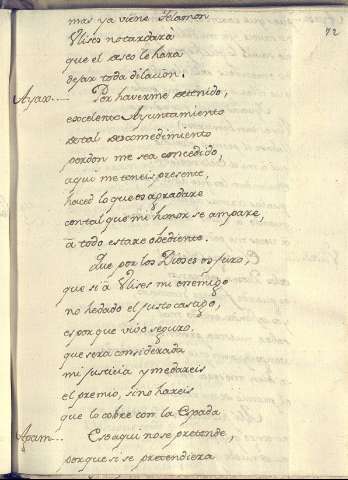 72
mas ya viene Telamon
Vlises no tardarà
que el deseo le harà
dejar toda dilacion.
Ayax.... Por haverme detenido,
excelente Ayuntamiento
de tal descomedimiento
perdon me sea concedido,
aqui me teneis presente,
haced lo que os agradare
con tal que mi honor se ampare,
à todo estare obediente.
Que por los Dioses os juro,
que si à Vlises mi enemigo
no he dado el justo castigo,
es por que vivo seguro.
que serà considerada
mi justicia y me dareis
el premio, si no hareis
que lo cobre con la Espada
Agam... Eso aqui no se pretende,
por que si se pretendiera